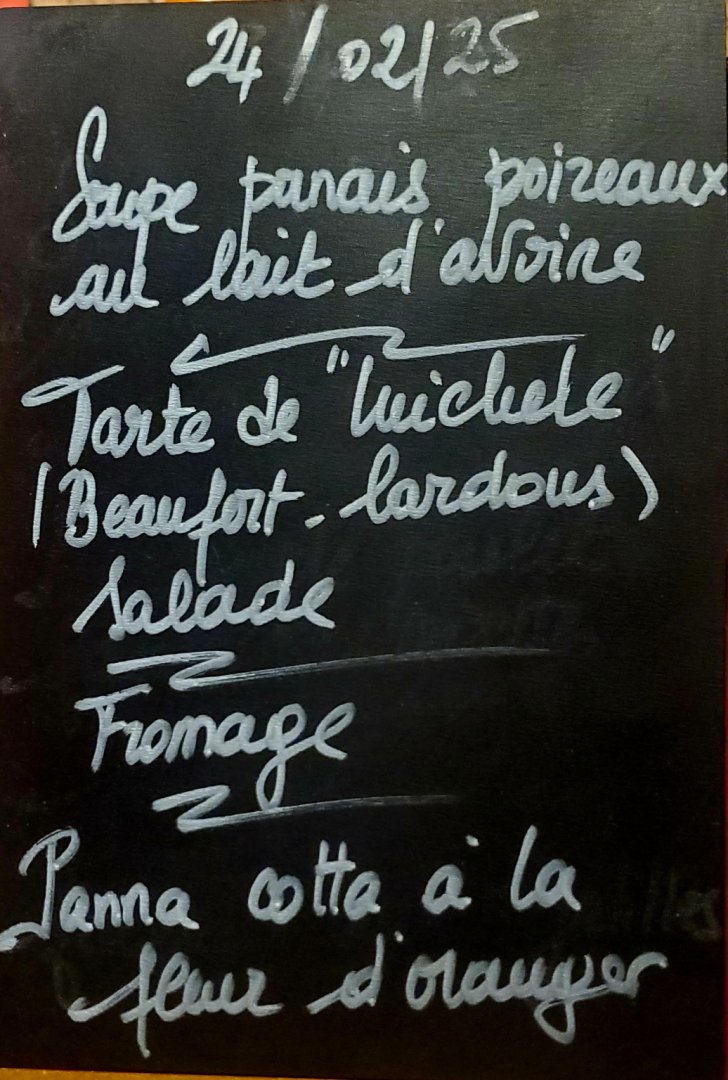 24/02/25
Soupe panais poireaux
au lait d'avoine
Tarte de "Michele"
(Beaufort - lardons)
Salade
Fromage
Panna cotta à la
fleur d'oranger